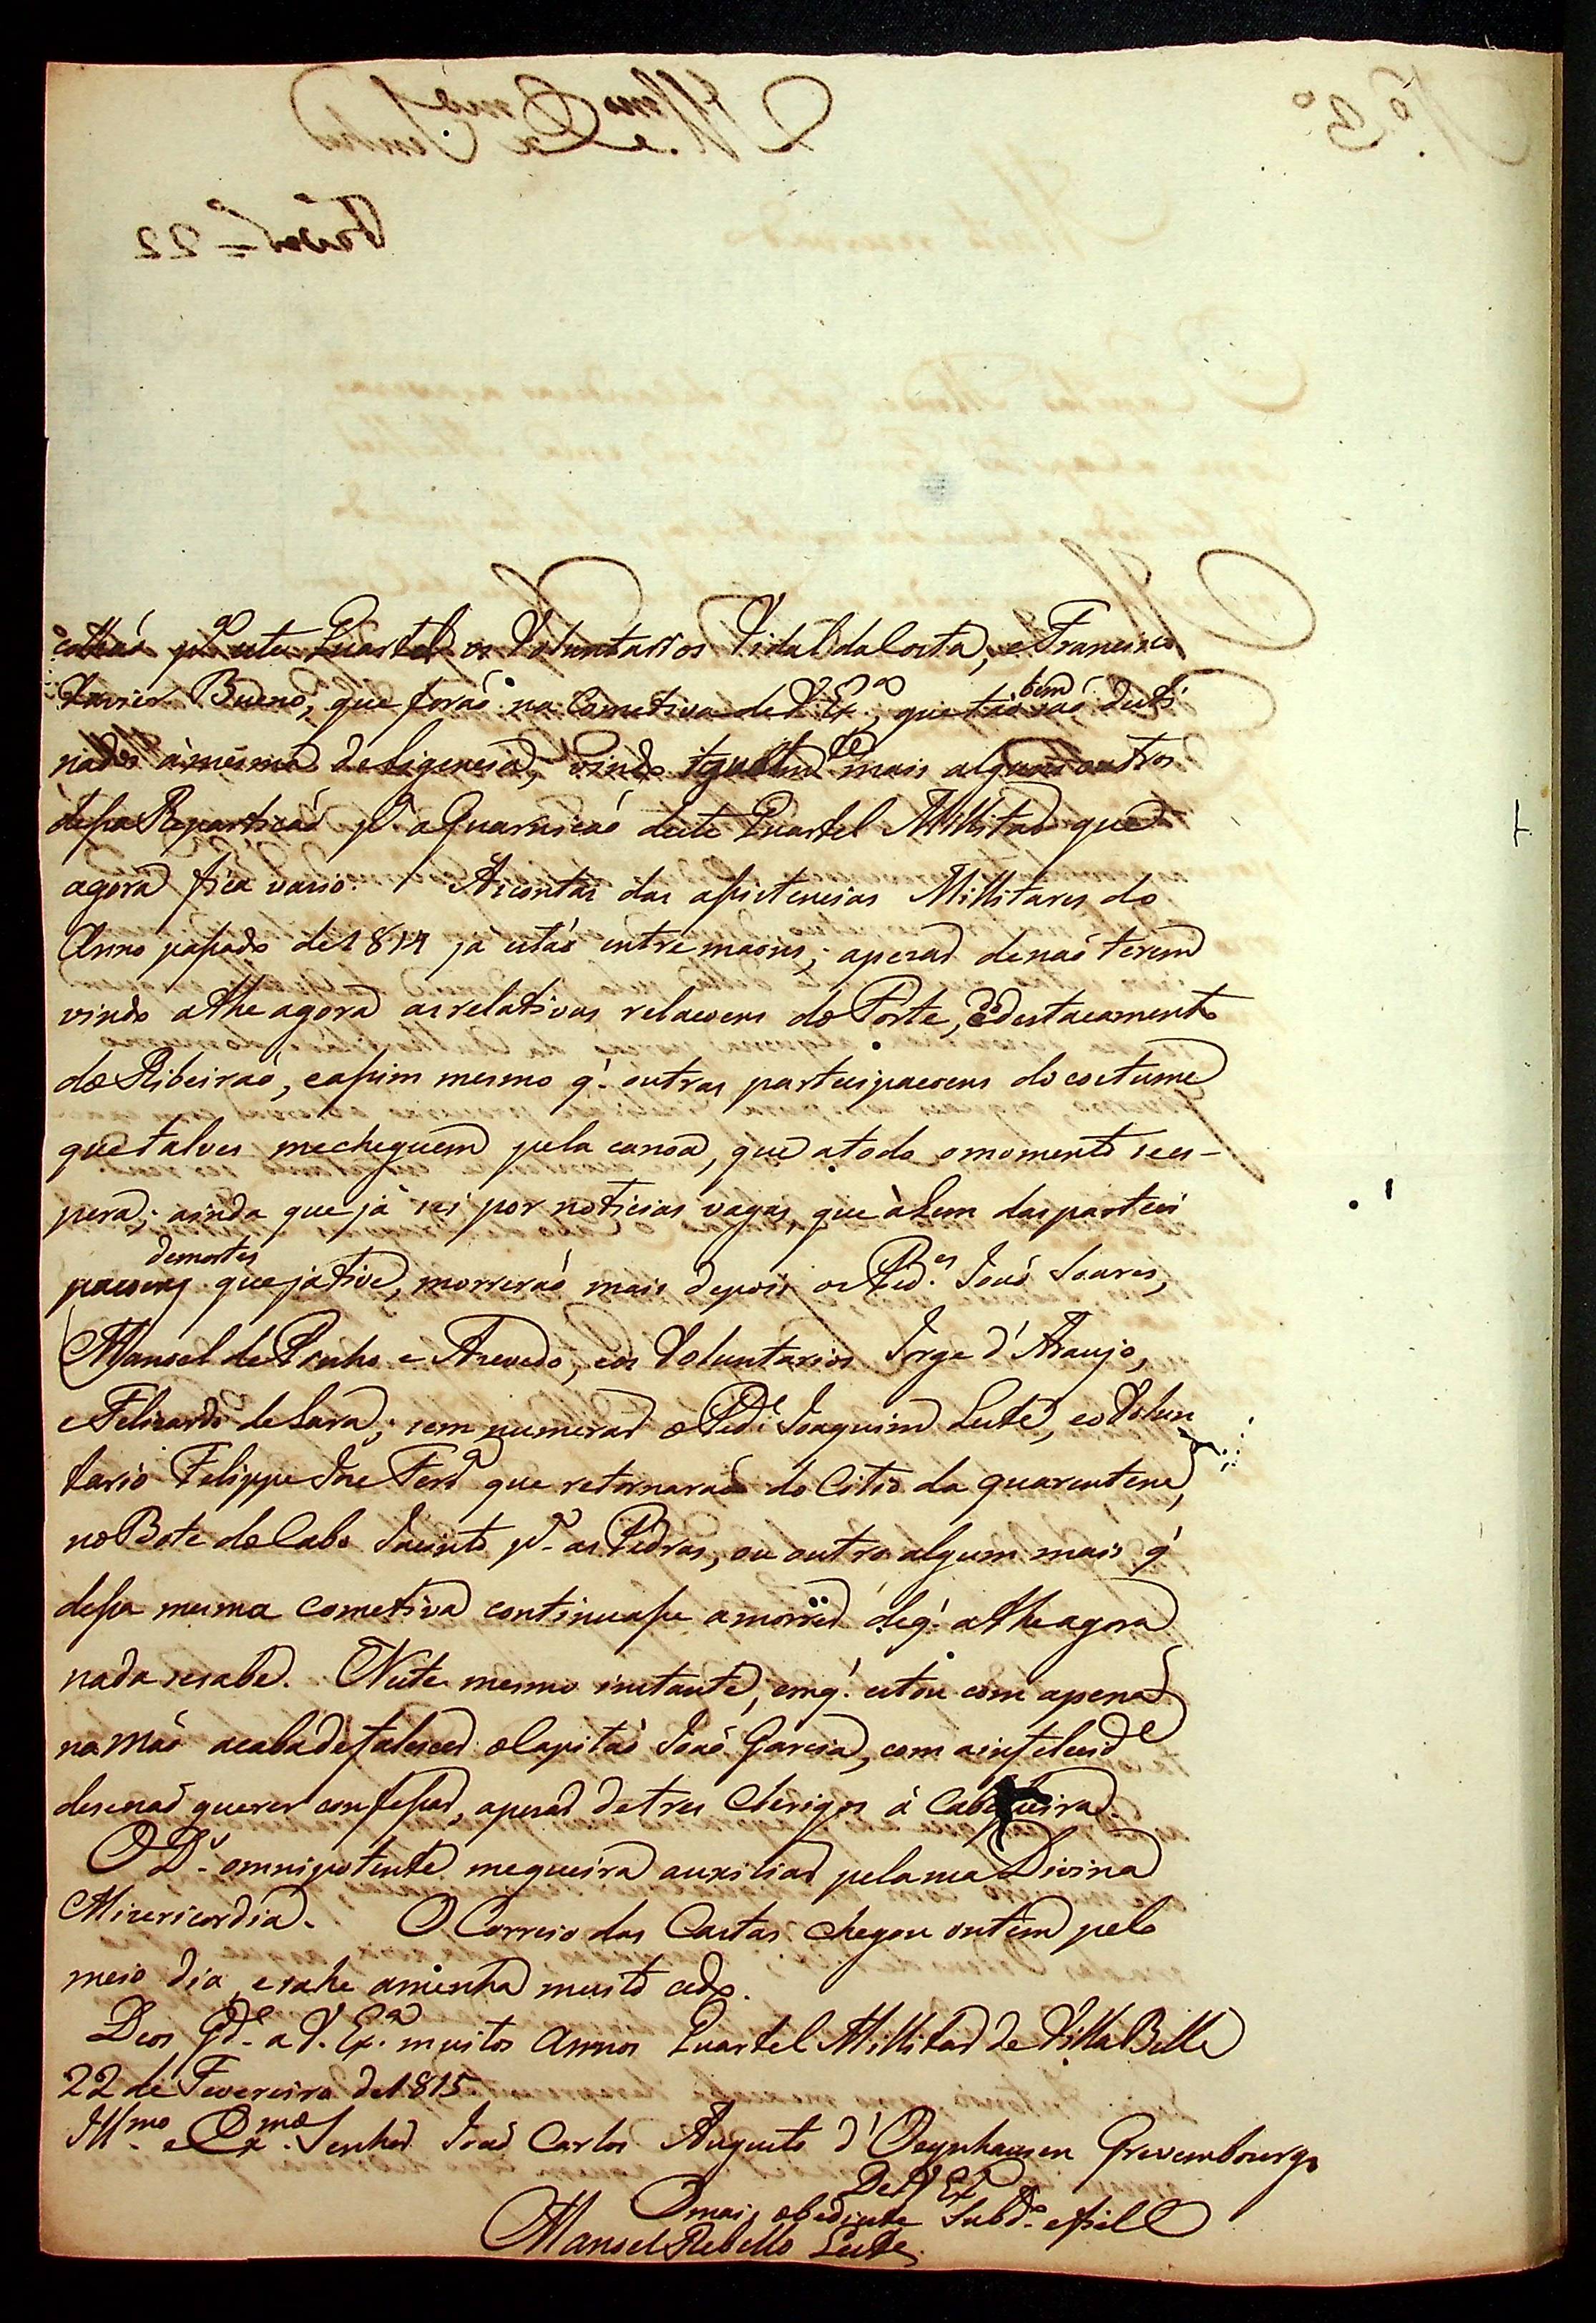 p.ª este Quartel os Voluntarios Vidal da Costa, e Francisco
Xavier Bueno, que foraõ na Cometiva de V. Ex.ª, que taõbem saõ desti
nados à mesma deligencia, vindo igualm.te mais alguns outros
dessa Repartiçaõ p.ª a Guarniçaõ deste Quartel Millitar que
agora fica vasio. As contas das assistencias Millitares do
Anno passado de 1814 já estaõ entre maons; apezar de naõ terem
vindo athe agora as relativas relacoens do Forte, e destacamento
do Ribeiraõ, e assim mesmo q.' outras partecipacoens do costume
que talves me cheguem pela canoa, que a todo o momento se es-
pera; ainda que já sei por noticias vagas, que àlem das parteci
pacoens de mortes que já tive, morreraõ mais depois os Ped.es Joaõ Soares,
Manoel de Pinho e Azevedo, e os Voluntarios Jorge d'Araujo,
e Felizardo de Lara; sem numerar o Ped.e Joaquim Leite, e o Volun
tario Felippe Joze Ferr.ª que retornaraõ do Citio da quarentena,
no Bote do Cabo Jacinto p.ª as Pedras, ou outro algum mais q'
dessa mesma cometiva continuasse a morrer de q.' athe agora
nada se sabe. Neste mesmo instante, em q.' estou com a pena
na maõ acaba de falescer o Capitaõ Joaõ Garcia, com a infelecid.e
de se naõ querer confessar, apezar de tres Clerigos á Cabeçeira.
O D.s omnipotente me queira auxiliar pela sua Divina
Mizericordia. O Correio das Cartas chegou ontem pelo
meio dia, e sahe amenha muito cedo.
Deos G.de a V. Ex.ª muitos Annos Quartel Millitar de Villa Bella
22 de Fevereiro de 1815
Ill.mo e Ex.mo Senhor Joaõ Carlos Augusto d'Oeynhausen Grevembourg
De V. Ex.ª
O mais obediente Subd.o e fiel
Manoel Rebello Leite